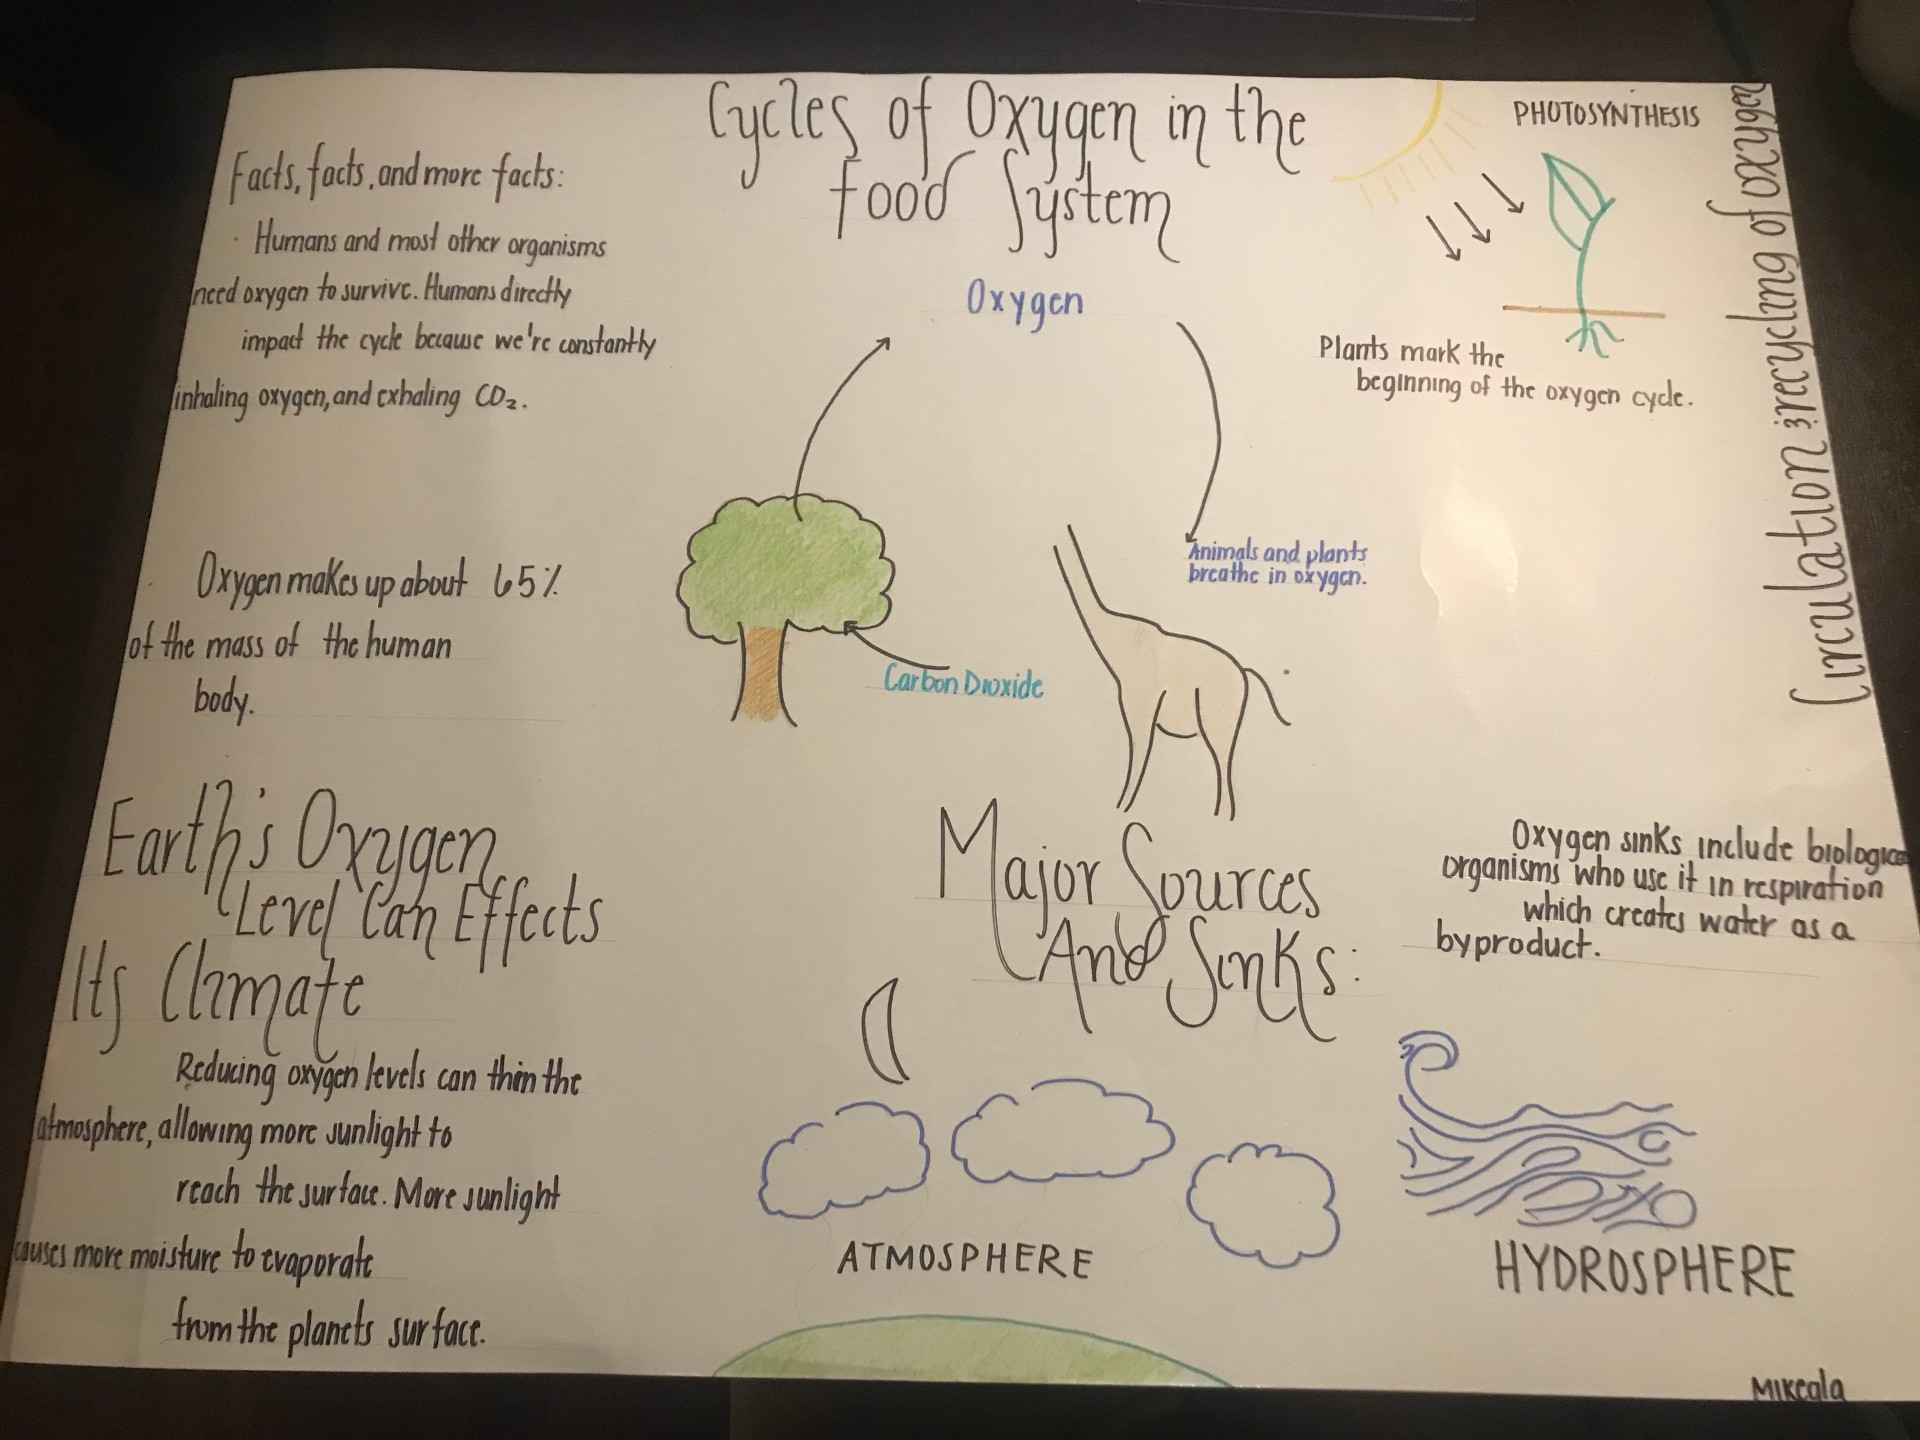 Cycles of Oxygen in the
Food System
Facts, facts, and more facts:
· Humans and most other organisms
need oxygen to survive. Humans directly
impact the cycle because we're constantly
inhaling oxygen, and exhaling CO₂.
· Oxygen makes up about 65%
of the mass of the human
body.
Oxygen
Animals and plants
breathe in oxygen.
Carbon Dioxide
PHOTOSYNTHESIS
Plants mark the
beginning of the oxygen cycle.
Circulation & recycling of oxygen
Earth's Oxygen
Level Can Effects
Its Climate
Reducing oxygen levels can thin the
atmosphere, allowing more sunlight to
reach the surface. More sunlight
causes more moisture to evaporate
from the planets surface.
Major Sources
And Sinks:
Oxygen sinks include biological
organisms who use it in respiration
which creates water as a
byproduct.
ATMOSPHERE
HYDROSPHERE
Mikeala